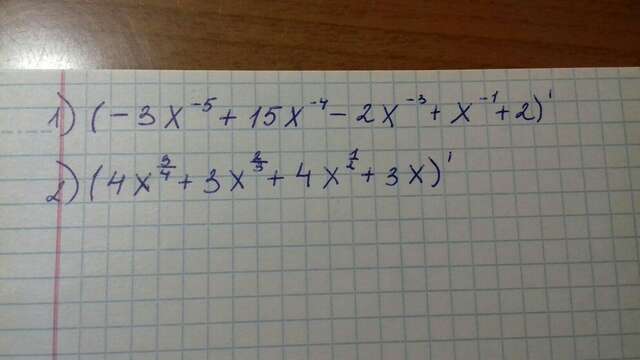 1) (-3x⁻⁵ + 15x⁻⁴ - 2x⁻³ + x⁻¹ + 2)'
2) (4x^{3/4} + 3x^{2/3} + 4x^{1/2} + 3x)'